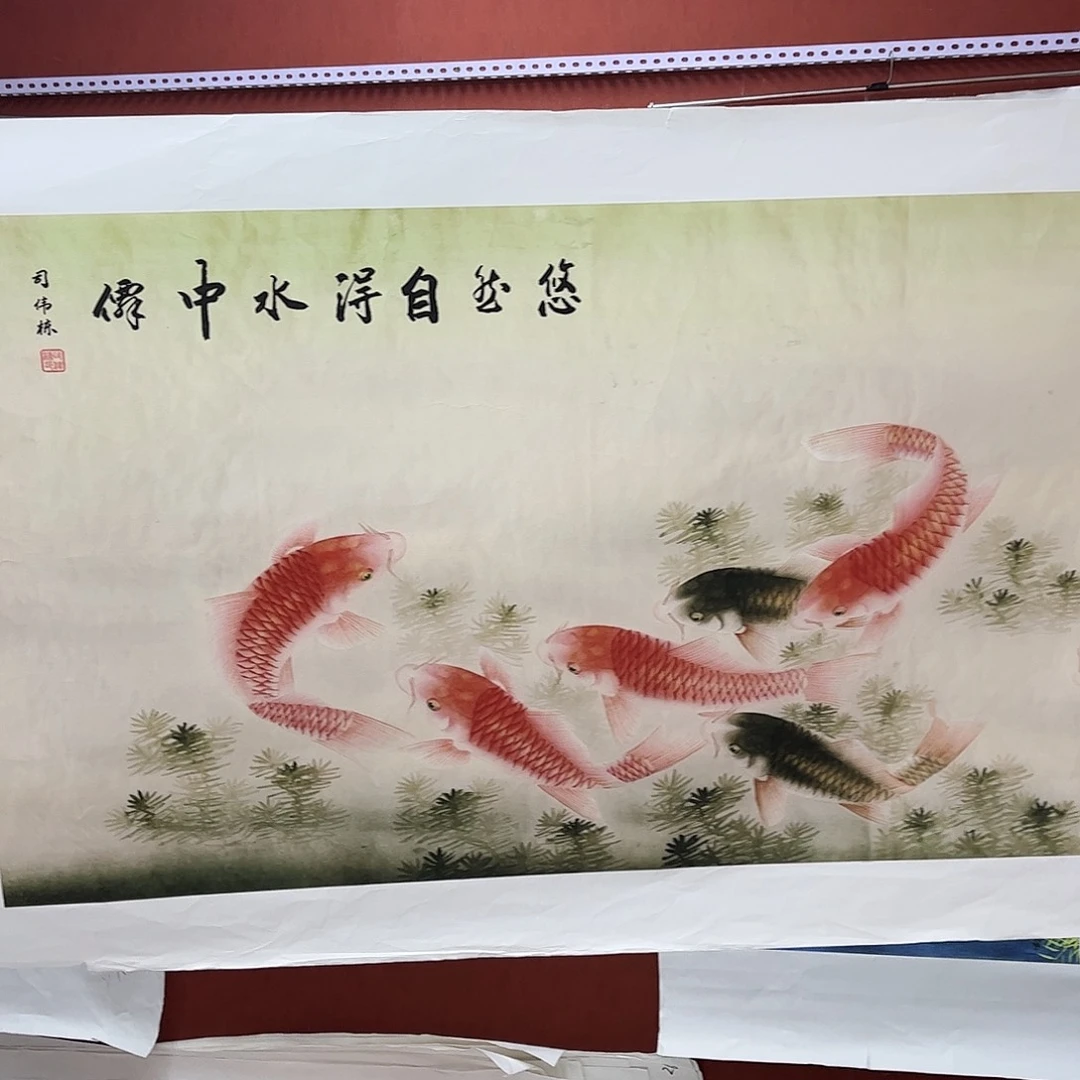 悠然自得水中僊
司伟栋